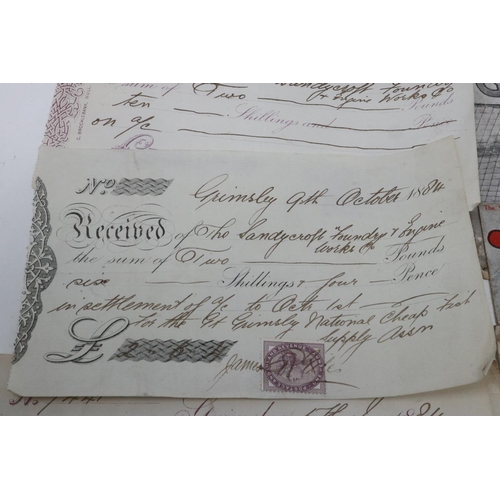 Sandycroft Foundry
the sum of Two & Engine Works Co Pounds
ten Shillings and Pence
on a/c
No. Grimsby 9th October 1884
Received of The Sandycroft Foundry & Engine
Works Co
the sum of Two Pounds
six Shillings & four Pence
in settlement of a/c to Octr 1st
for the Gt Grimsby National Cheap Fish
Supply Assn
£ 2
James
1884